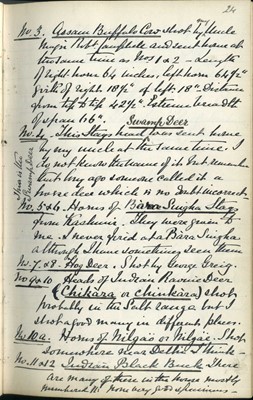 24
No. 3. Assam Buffalo Cow shot by Uncle
Major Robt Campbell and sent home at
the same time as Nos 1 & 2 - Length
of right horn 64 inches, left horn 64½"
girth of right 18¾" of left 18". Distance
from tip to tip 42½". Extreme breadth
of span 86".
Swamp Deer
No. 4. This Stags head was sent home
by my uncle at the same time. I
do not know the name of it but remember
that long ago someone called it a
which is no doubt incorrect.
This is the Swamp Deer
No. 5 & 6. Horns of Bara Singha Stags
from Kashmir. They were given to
me. I never fired at a Bara Singha
although I have sometimes seen them
No. 7 & 8. Hog Deer. Shot by George Greig.
No 9 & 10 Heads of Indian Ravine Deer
(Chikara or Chinkara) shot
probably in the Salt range but I
shot a good many in different places.
No. 10a. Horns of Nilgao or Nilgae. Shot
Somewhere near Delhi I think -
No. 11 & 12 Indian Black Buck There
are many of these in the house mostly
numbered 11. None very good specimens -